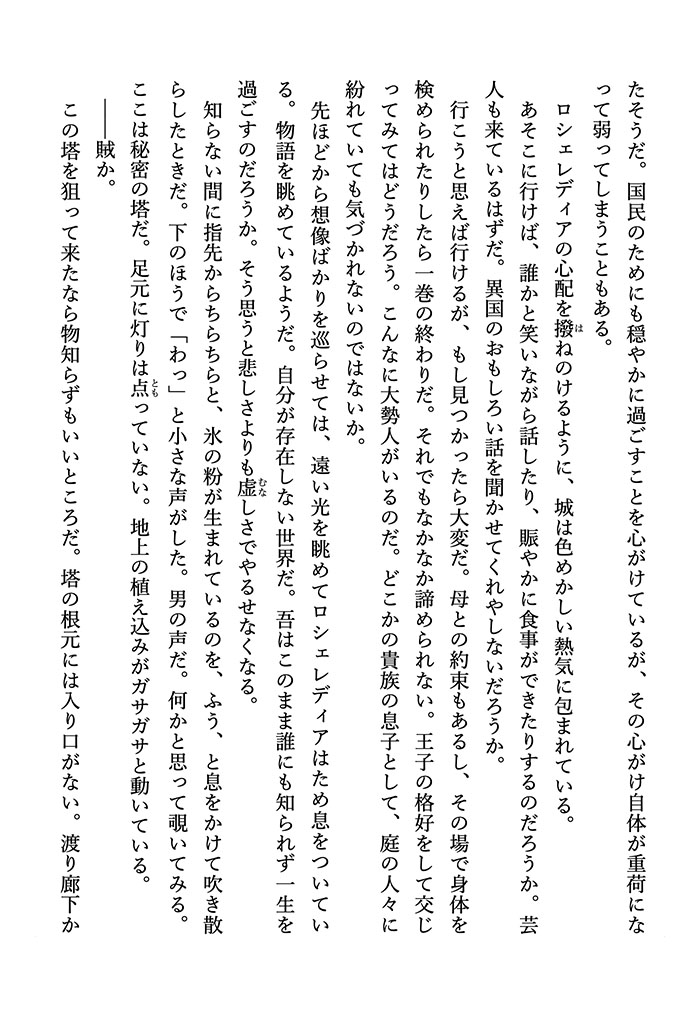 たそうだ。国民のためにも穏やかに過ごすことを心がけているが、その心がけ自体が重荷にな
って弱ってしまうこともある。
ロシェレディアの心配を撥ねのけるように、城は色めかしい熱気に包まれている。
あそこに行けば、誰かと笑いながら話したり、賑やかに食事ができたりするのだろうか。芸
人も来ているはずだ。異国のおもしろい話を聞かせてくれやしないだろうか。
行こうと思えば行けるが、もし見つかったら大変だ。母との約束もあるし、その場で身体を
検められたりしたら一巻の終わりだ。それでもなかなか諦められない。王子の格好をして交じ
ってみてはどうだろう。こんなに大勢人がいるのだ。どこかの貴族の息子として、庭の人々に
紛れていても気づかれないのではないか。
先ほどから想像ばかりを巡らせては、遠い光を眺めてロシェレディアはため息をついてい
る。物語を眺めているようだ。自分が存在しない世界だ。吾はこのまま誰にも知られず一生を
過ごすのだろうか。そう思うと悲しさよりも虚しさでやるせなくなる。
知らない間に指先からちらちらと、氷の粉が生まれているのを、ふう、と息をかけて吹き散
らしたときだ。下のほうで「わっ」と小さな声がした。男の声だ。何かと思って覗いてみる。
ここは秘密の塔だ。足元に灯りは点っていない。地上の植え込みがガサガサと動いている。
――賊か。
この塔を狙って来たなら物知らずもいいところだ。塔の根元には入り口がない。渡り廊下か